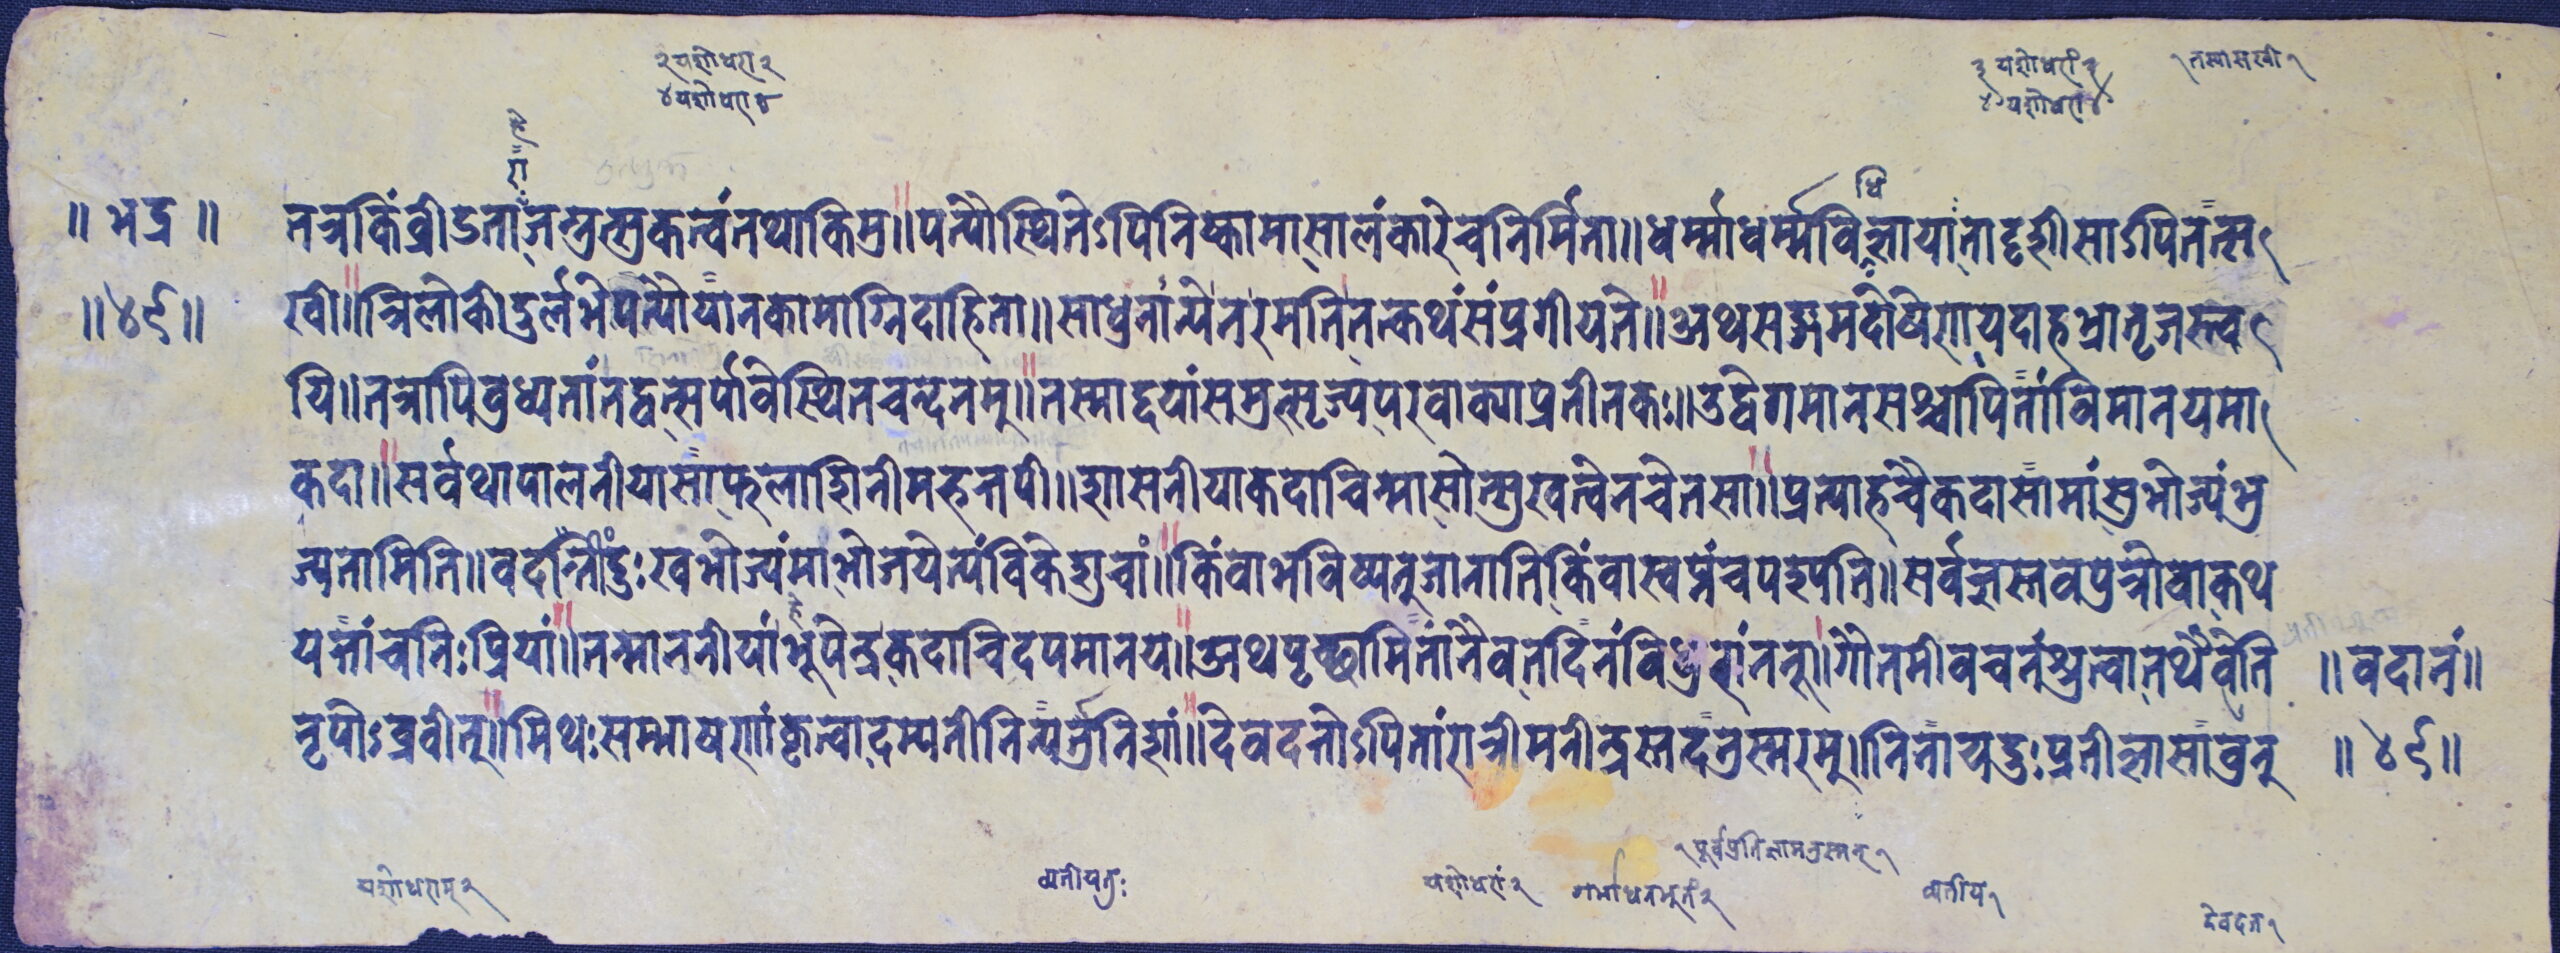 २ यशोधरा २
४ यशोधरा ४
३ यशोधरां ३
४ यशोधरा ४
१ तस्या सखी १
हे
रा
धि
॥ भद्र ॥ तत्र किं व्रीडता जन्तुत्सुकत्वं तथा किमु ॥ पत्यौ स्थितेऽपि निष्कामा सालंकारे च निर्मिता ॥ धर्म्माधर्म्मवि याता दृशी साऽपि तत्स
॥ ४९ ॥ खी ॥ त्रिलोके दुर्लभे पत्यौ या न कामाग्निदाहिता ॥ साधुना न्येन रमति तत्कथं संप्रगीयते ॥ अथ सङ्गमदोषेण यदाह भ्रातृजस्त्व
यि ॥ तत्रापि बुध्यतां तद्वत्सर्पावेस्थित चन्दनम् ॥ तस्माद्दयां समुत्सृज्य परवाक्याप्रतीतकः ॥ उद्वेगमानसश्चापि तां विमानय मा
कदा ॥ सर्वथा पालनीया सा फलाशिनी महत्तपी ॥ शासनीया कदाचिन्मा सोत्सुखत्वेन चेतसा ॥ प्रत्याह चैकदा सा मां सुभोज्यं भु
ज्यतामिति ॥ वदन्तीं दुःखभोज्यं मा भोजयेत्यं विकेशुचां ॥ किं वा भविष्यत् जानाति किं वा स्वप्नं च पश्यति ॥ सर्वज्ञस्तव पुत्रो वा कथ
यत्तां च निःप्रियां ॥ तन्माननीयां भूपेन्द्र कदाचिदपमानय ॥ अथ पृच्छामि तां नैव तद्दिनं विधुरां ननू ॥ गौतमीवचनं श्रुत्वा तथैवेति ॥ वदानं ॥
नृपोऽब्रवीत् ॥ मिथः सम्भाषणं कृत्वा दम्पती नित्यतुर्निशां ॥ देवदत्तोऽपि तां रात्रीमतीन्द्रस्तदनुस्मरम् ॥ निनाय दुःप्रतीज्ञासावुन् ॥ ४९ ॥
१ पूर्वप्रतिज्ञामनुस्मरन् १
यशोधराम् २
व्यतीयतुः
यशोधरां २
व्यतीय १
देवदत्त १